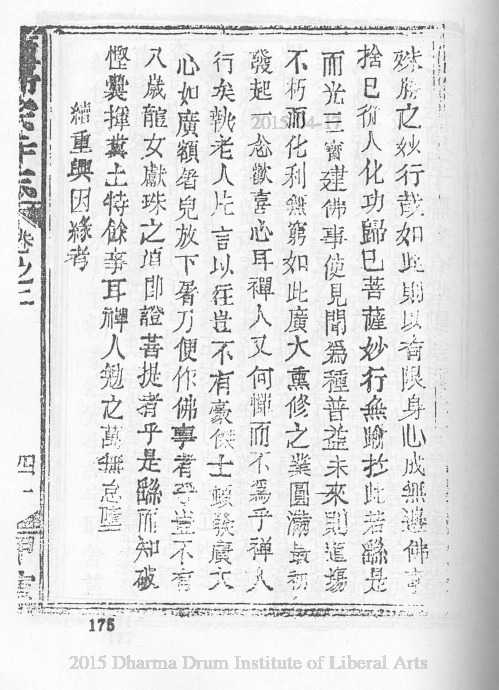 殊勝之妙行誠如此則以有限身心成無邊佛事
捨己從人化功歸己菩薩妙行無踰於此若繇是
而光三寶建佛事使見聞爲種普益未來則道塲
不朽而化利無窮如此廣大熏修之業圓滿最初
發起一念歡喜心耳禪人又何憚而不爲乎禪人
行矣執老人片言以往豈不有豪傑士頓發廣大
心如廣額屠兒放下屠刀便作佛事者乎豈不有
八歲龍女獻珠之頃即證菩提者乎是繇而知破
慳囊揮糞土特餘事耳禪人勉之萬無怠墮
續重興因緣考
卷之三
四十一
175
2015 Dharma Drum Institute of Liberal Arts